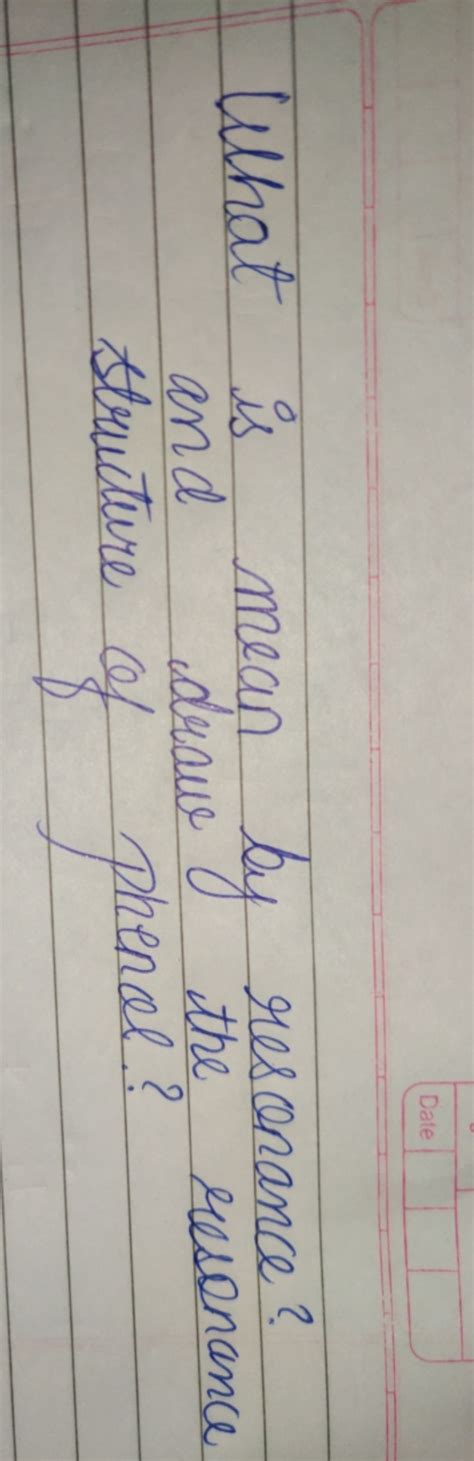 What is mean by resonance?
and draw the resonance
structure of phenol?
Date